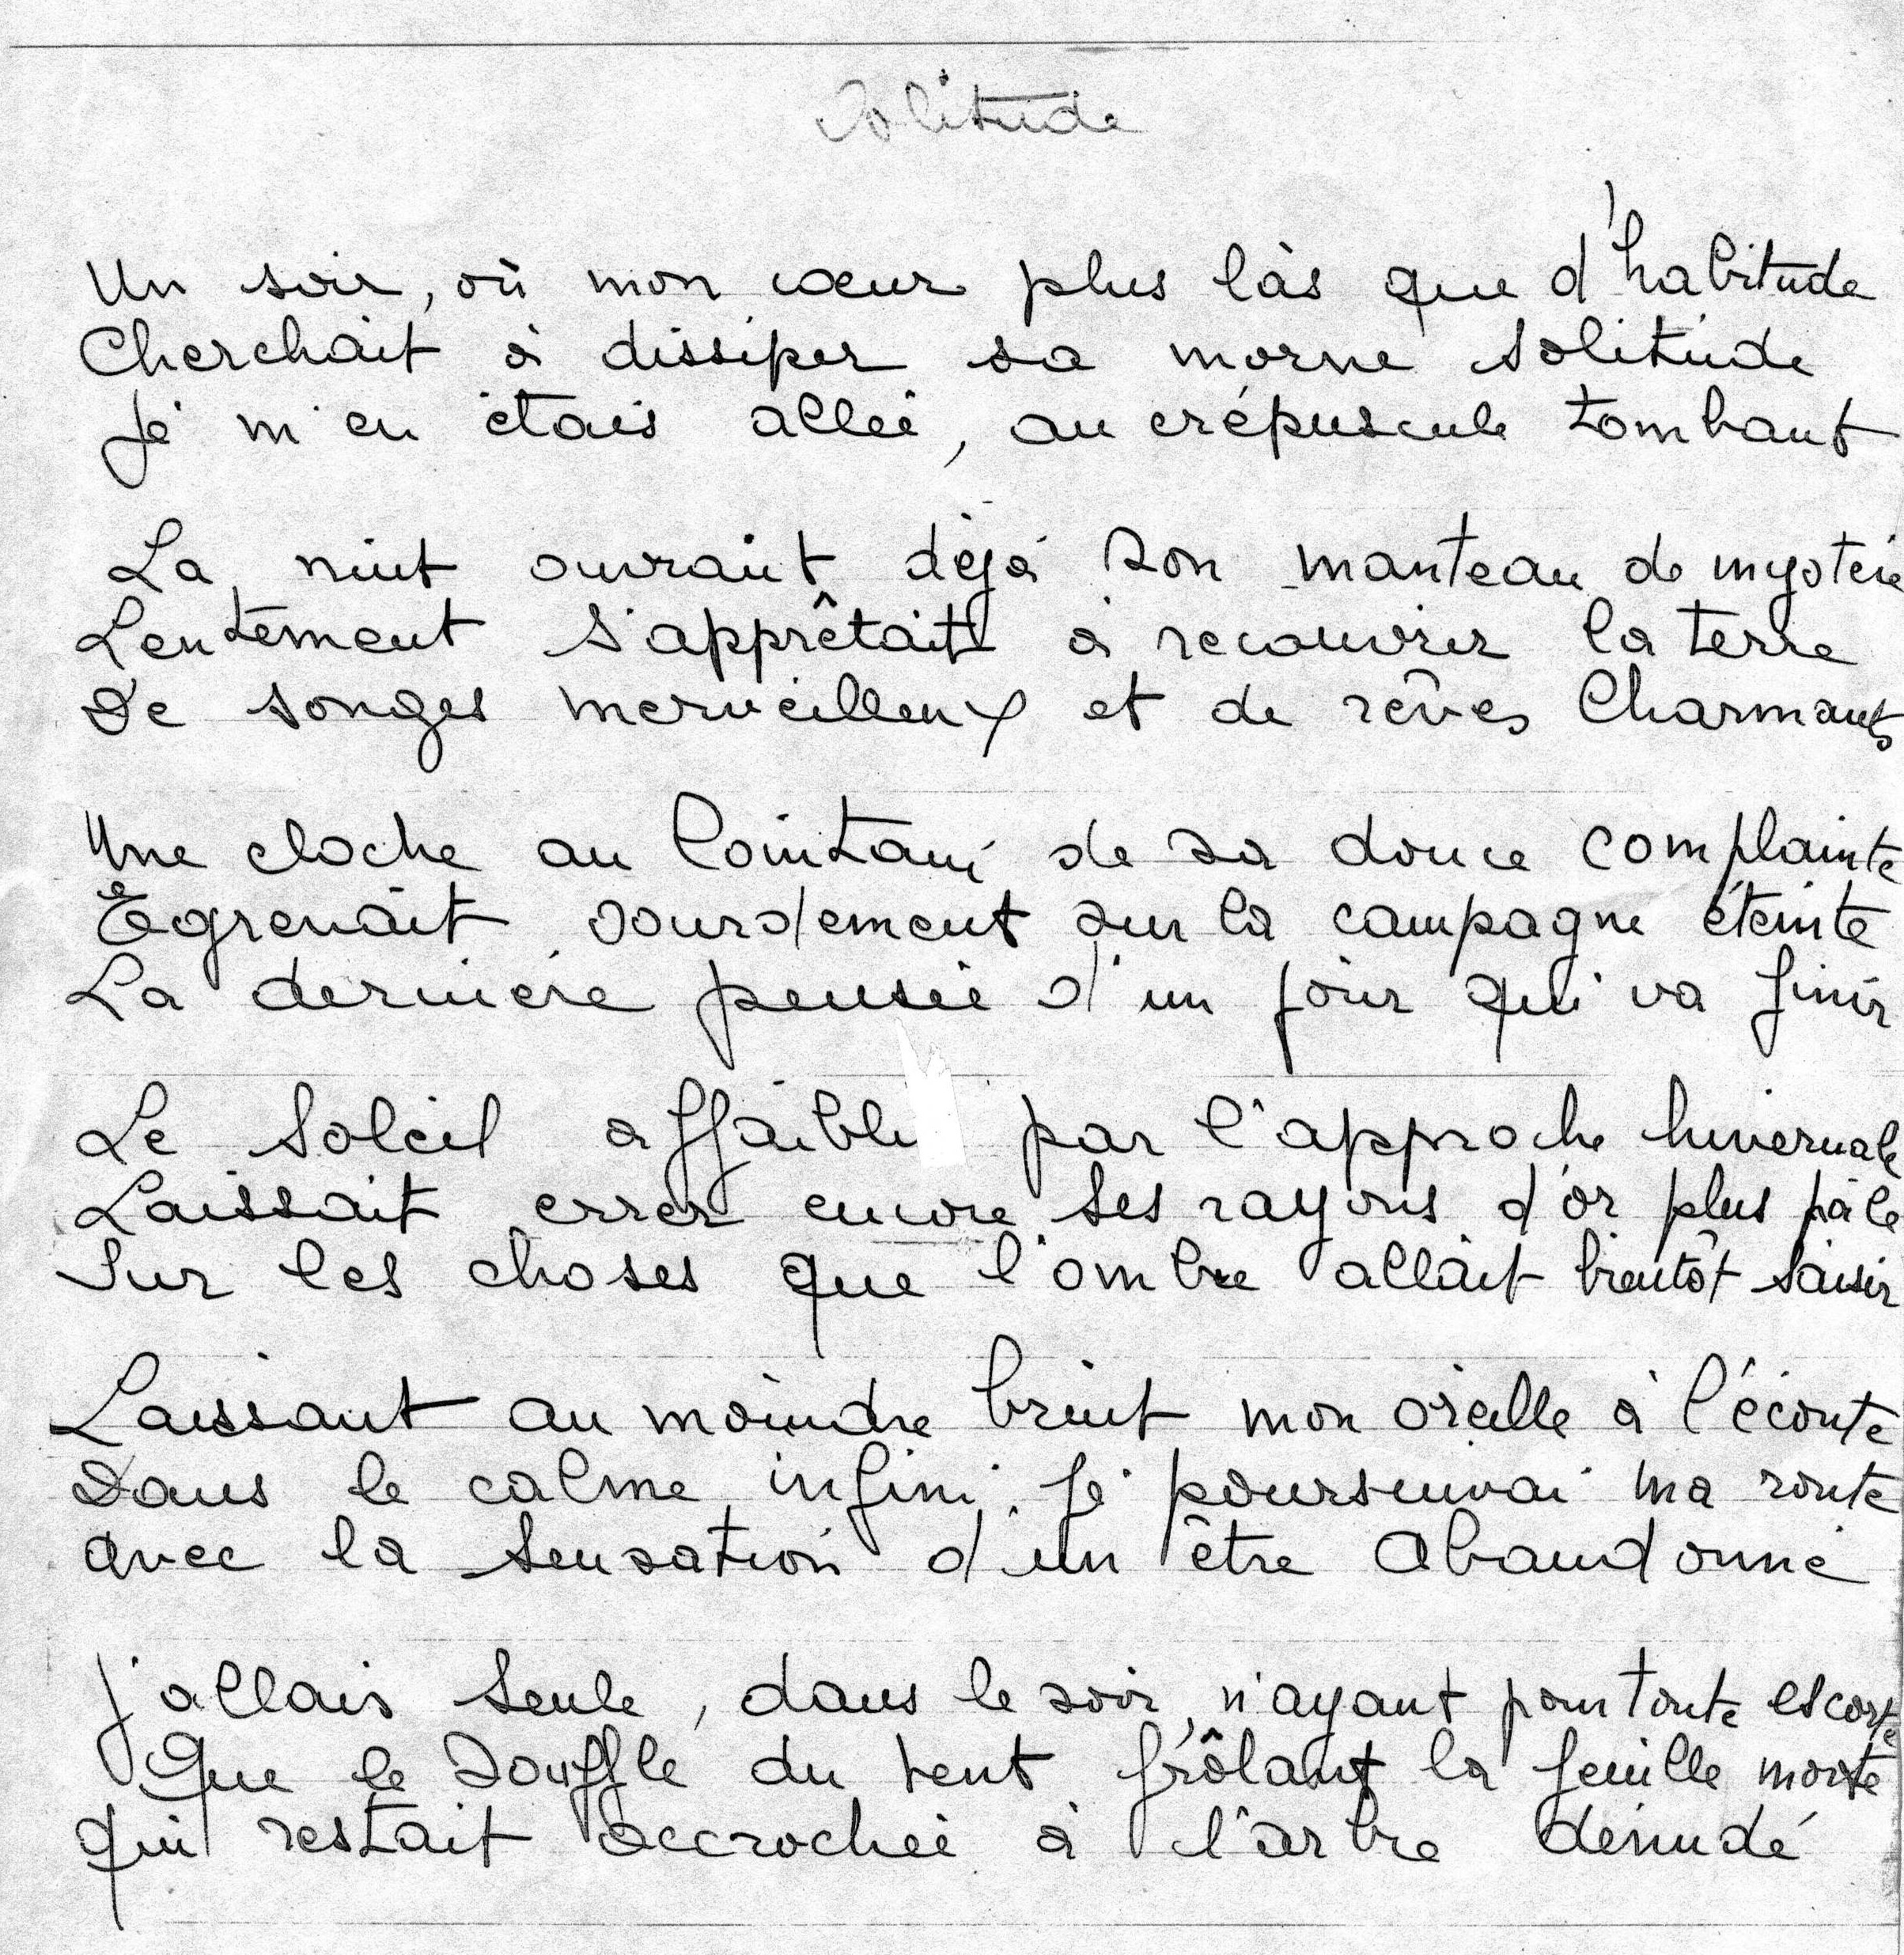 Solitude
Un soir, où mon cœur plus làs que d'habitude
Cherchait à dissiper sa morne solitude
Je m'en étais allée, au crépuscule tombant
La nuit ouvrait déjà son manteau de mystère
Lentement s'apprêtait à recouvrir la terre
De songes merveilleux et de rêves charmants
Une cloche au lointain de sa douce complainte
Egrenait sourdement sur la campagne éteinte
La dernière pensée d'un jour qui va finir
Le soleil affaibli par l'approche hivernale
Laissait errer encore ses rayons d'or plus pâle
Sur les choses que l'ombre allait bientôt saisir
Laissant au moindre bruit mon oreille à l'écoute
Dans le calme infini. Je poursuivai ma route
avec la sensation d'un être abandonné
J'allais seule, dans le soir, n'ayant pour toute escorte
Que le souffle du vent frôlant la feuille morte
qui restait accrochée à l'arbre dénudé